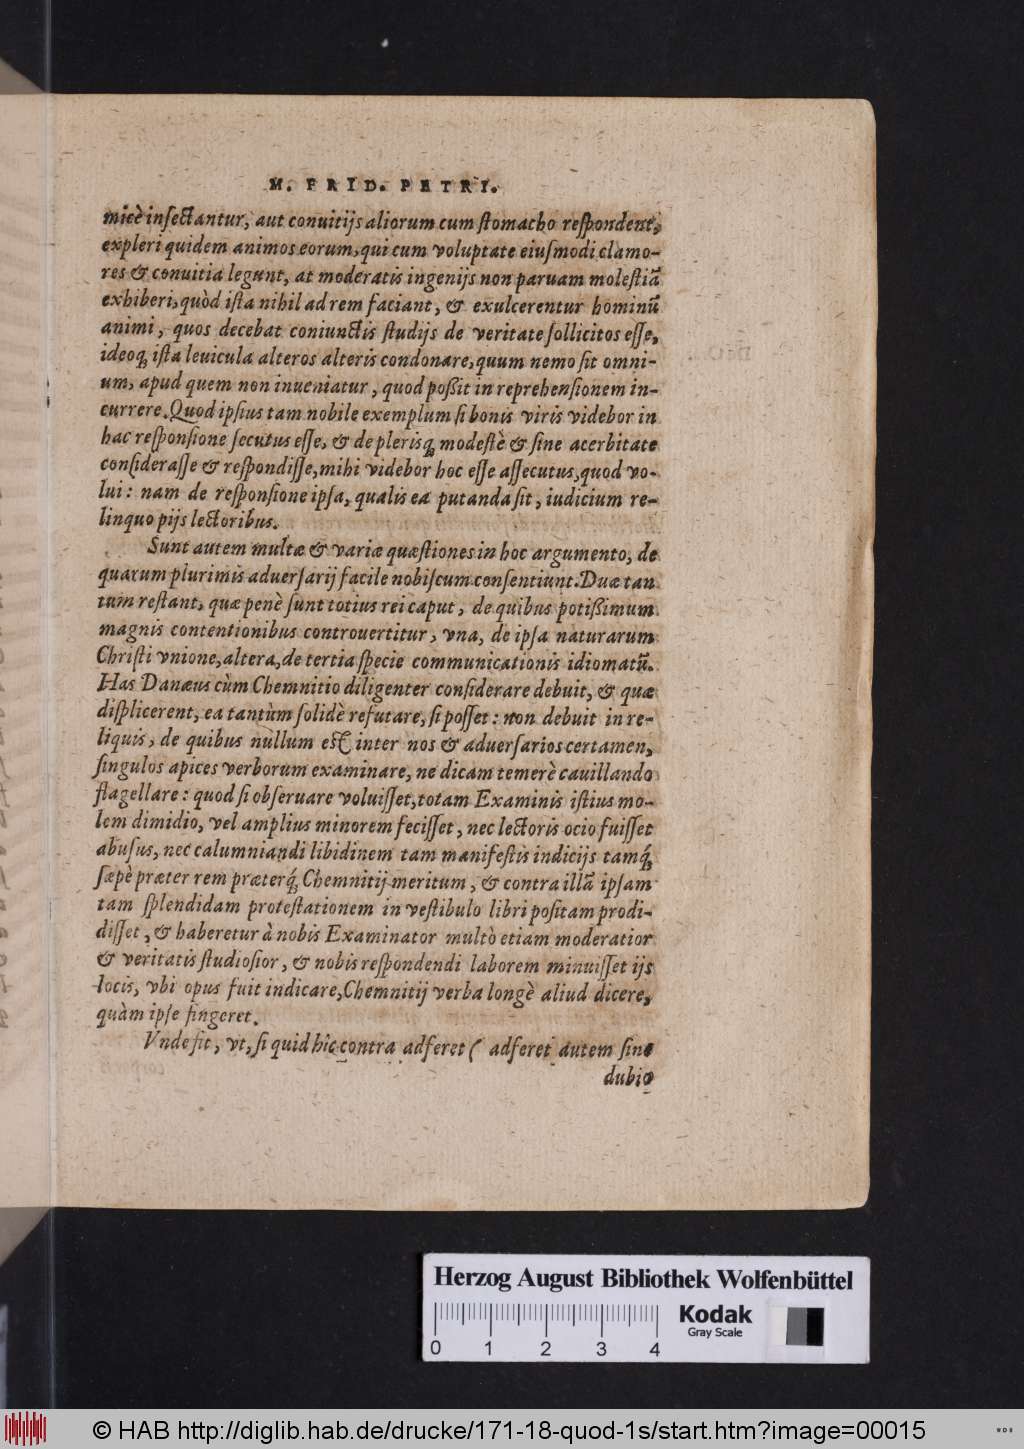 M. FRID. PETRI.
micè inſectantur, aut conuitijs aliorum cum ſtomacho reſpondent,
expleri quidem animos eorum, qui cum voluptate eiuſmodi clamo-
res & conuitia legunt, at moderatis ingenijs non paruam moleſtiā
exhiberi, quòd iſta nihil ad rem faciant, & exulcerentur hominū
animi, quos decebat coniunctis ſtudijs de veritate ſollicitos eſſe,
ideoq́; iſta leuicula alteros alteris condonare, quum nemo ſit omni-
um, apud quem non inueniatur, quod poßit in reprehenſionem in-
currere. Quod ipſius tam nobile exemplum ſi bonis viris videbor in
hac reſponſione ſecutus eſſe, & de plerisq́; modeſtè & ſine acerbitate
conſideraſſe & reſpondiſſe, mihi videbor hoc eſſe aſſecutus, quod vo-
lui: nam de reſponſione ipſa, qualis ea putanda ſit, iudicium re-
linquo pijs lectoribus.
Sunt autem multæ & variæ quæſtiones in hoc argumento, de
quarum plurimis aduerſarij facile nobiſcum conſentiunt. Duæ tan
tum reſtant, quæ penè ſunt totius rei caput, de quibus potißimum
magnis contentionibus controuertitur, vna, de ipſa naturarum
Chriſti vnione, altera, de tertia ſpecie communicationis idiomatū.
Has Danæus cùm Chemnitio diligenter conſiderare debuit, & quæ
diſplicerent, ea tantùm ſolidè refutare, ſi poſſet: non debuit in re-
liquis, de quibus nullum eſt inter nos & aduerſarios certamen,
ſingulos apices verborum examinare, ne dicam temerè cauillando
flagellare: quod ſi obſeruare voluiſſet, totam Examinis iſtius mo-
lem dimidio, vel amplius minorem feciſſet, nec lectoris ocio fuiſſet
abuſus, nec calumniandi libidinem tam manifeſtis indicijs tamq́;
ſæpè præter rem præterq́; Chemnitij meritum, & contra illā ipſam
tam ſplendidam proteſtationem in veſtibulo libri poſitam prodi-
diſſet, & haberetur à nobis Examinator multò etiam moderatior
& veritatis ſtudioſior, & nobis reſpondendi laborem minuiſſet ijs
locis, vbi opus fuit indicare, Chemnitij verba longè aliud dicere,
quàm ipſe fingeret.
Vnde fit, vt, ſi quid hic contra adferet ( adferet autem ſine
dubio
Herzog August Bibliothek Wolfenbüttel
Kodak
Gray Scale
0 1 2 3 4
© HAB http://diglib.hab.de/drucke/171-18-quod-1s/start.htm?image=00015